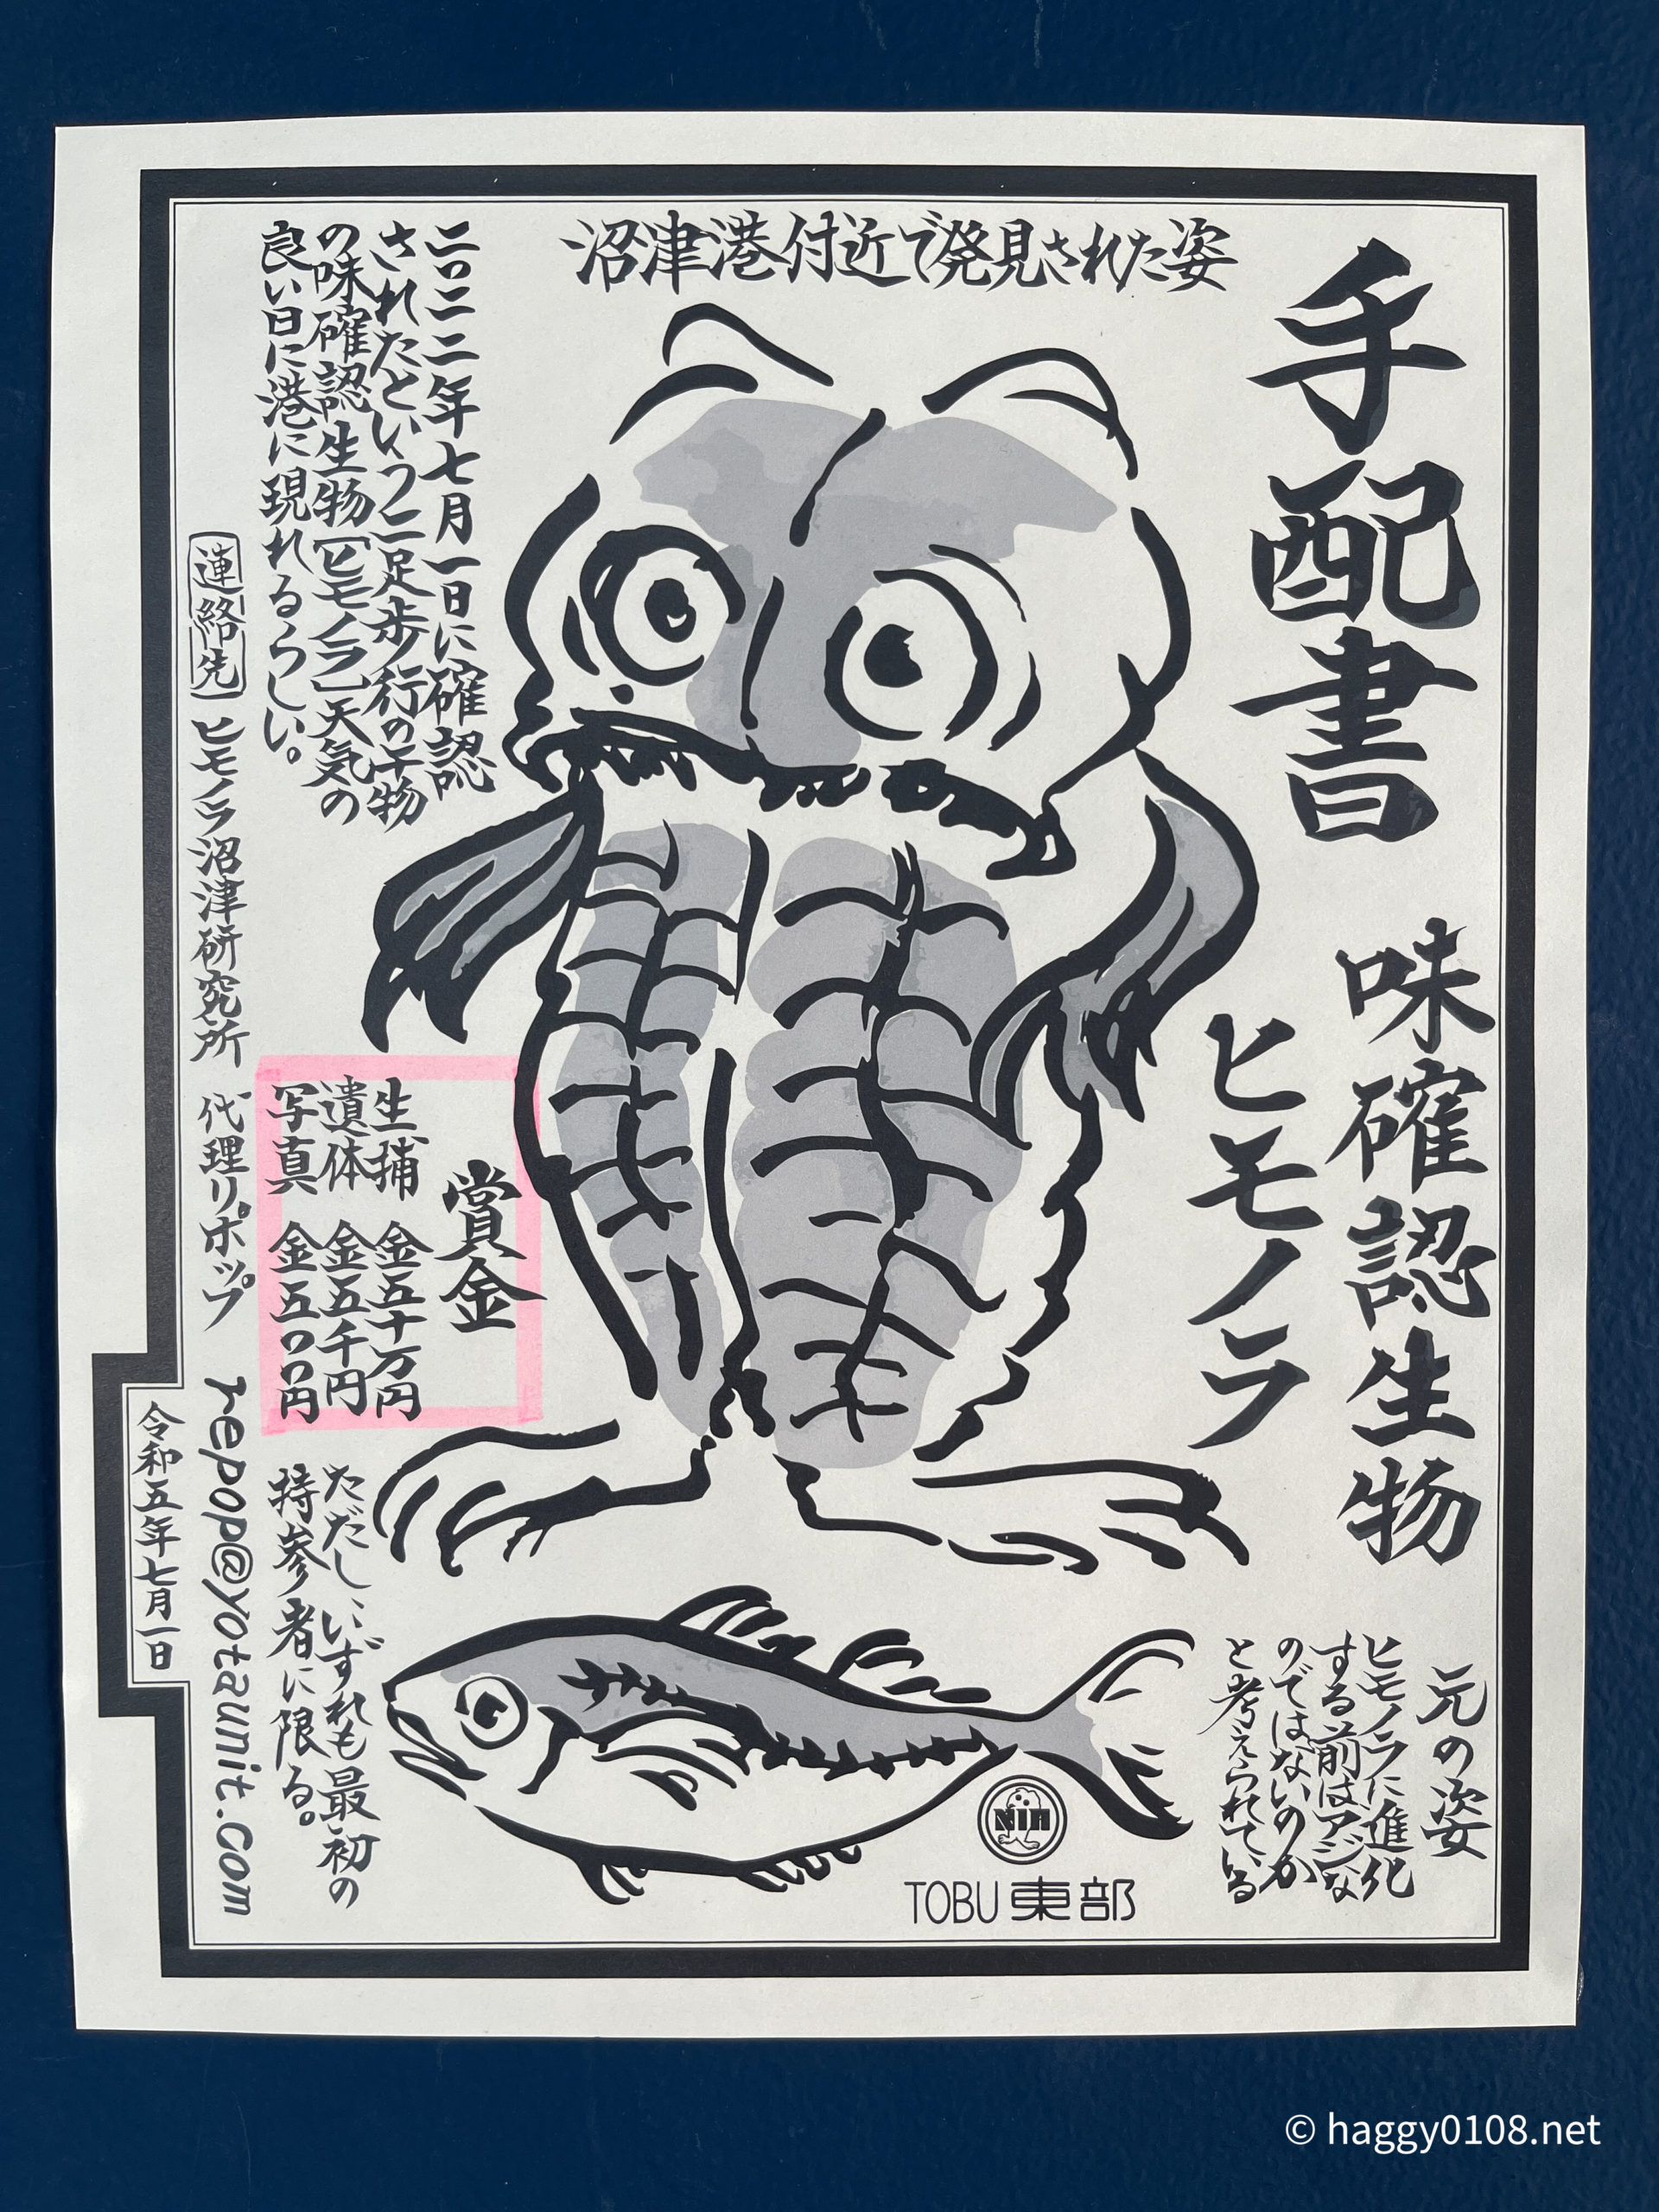 手配書
味確認生物
ヒモノラ
沼津港付近で発見された姿
二〇二二年七月一日に確認
されたという二足歩行の干物
の味確認生物［ヒモノラ］天気の
良い日に港に現れるらしい。
賞金
生捕 金五十万円
遺体 金五千円
写真 金五〇〇円
ただし、いずれも最初の
持参者に限る。
連絡先 ヒモノラ沼津研究所 代理リポップ repop@yotaunit.com
令和五年七月一日
元の姿
ヒモノラに進化
する前はアジな
のではないのか
と考えられている
NIH
TOBU 東部
© haggy0108.net